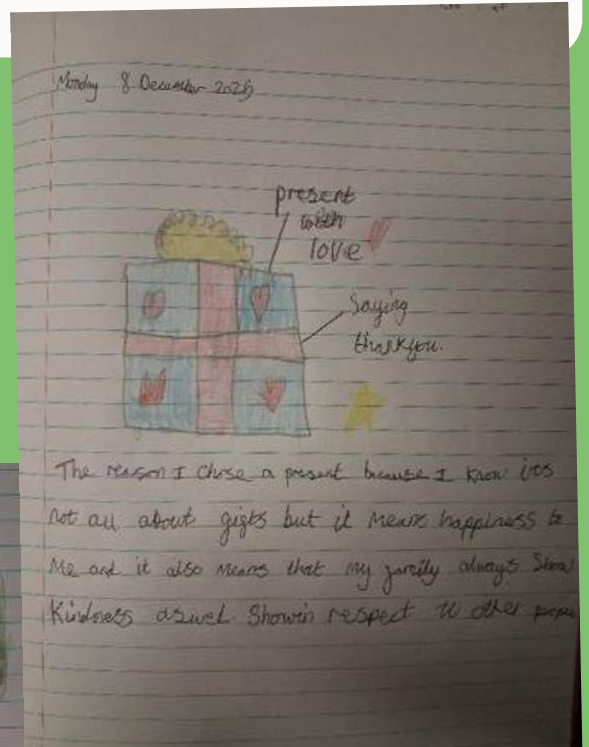 Monday 8 December 2025
present
with
love
Saying
thankyou.
The reason I chose a present because I know its
not all about gigts but it means happiness to
Me and it also means that my family always Show
Kindness aswel Showin respect to other people